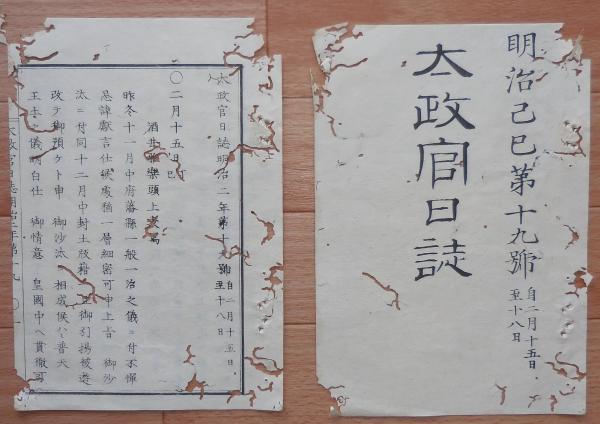 明治己巳第十九號 自二月十五日
至十八日
太政官日誌
太政官日誌明治二年第十九號 自二月十五日
至十八日
〇二月十五日
酒井雅樂頭上書寫
昨冬十一月中府藩縣一般一治之儀ニ付不憚
忌諱獻言仕候處猶一層細密可申上旨 御沙
汰ニ付同十二月中封土版籍 御引揚被遊
改テ御預ケト申 御沙汰 相成候ハヽ普天
王土ノ儀明白仕 御情意 皇國中ヘ貫徹可
太政官日誌明治二年第十九